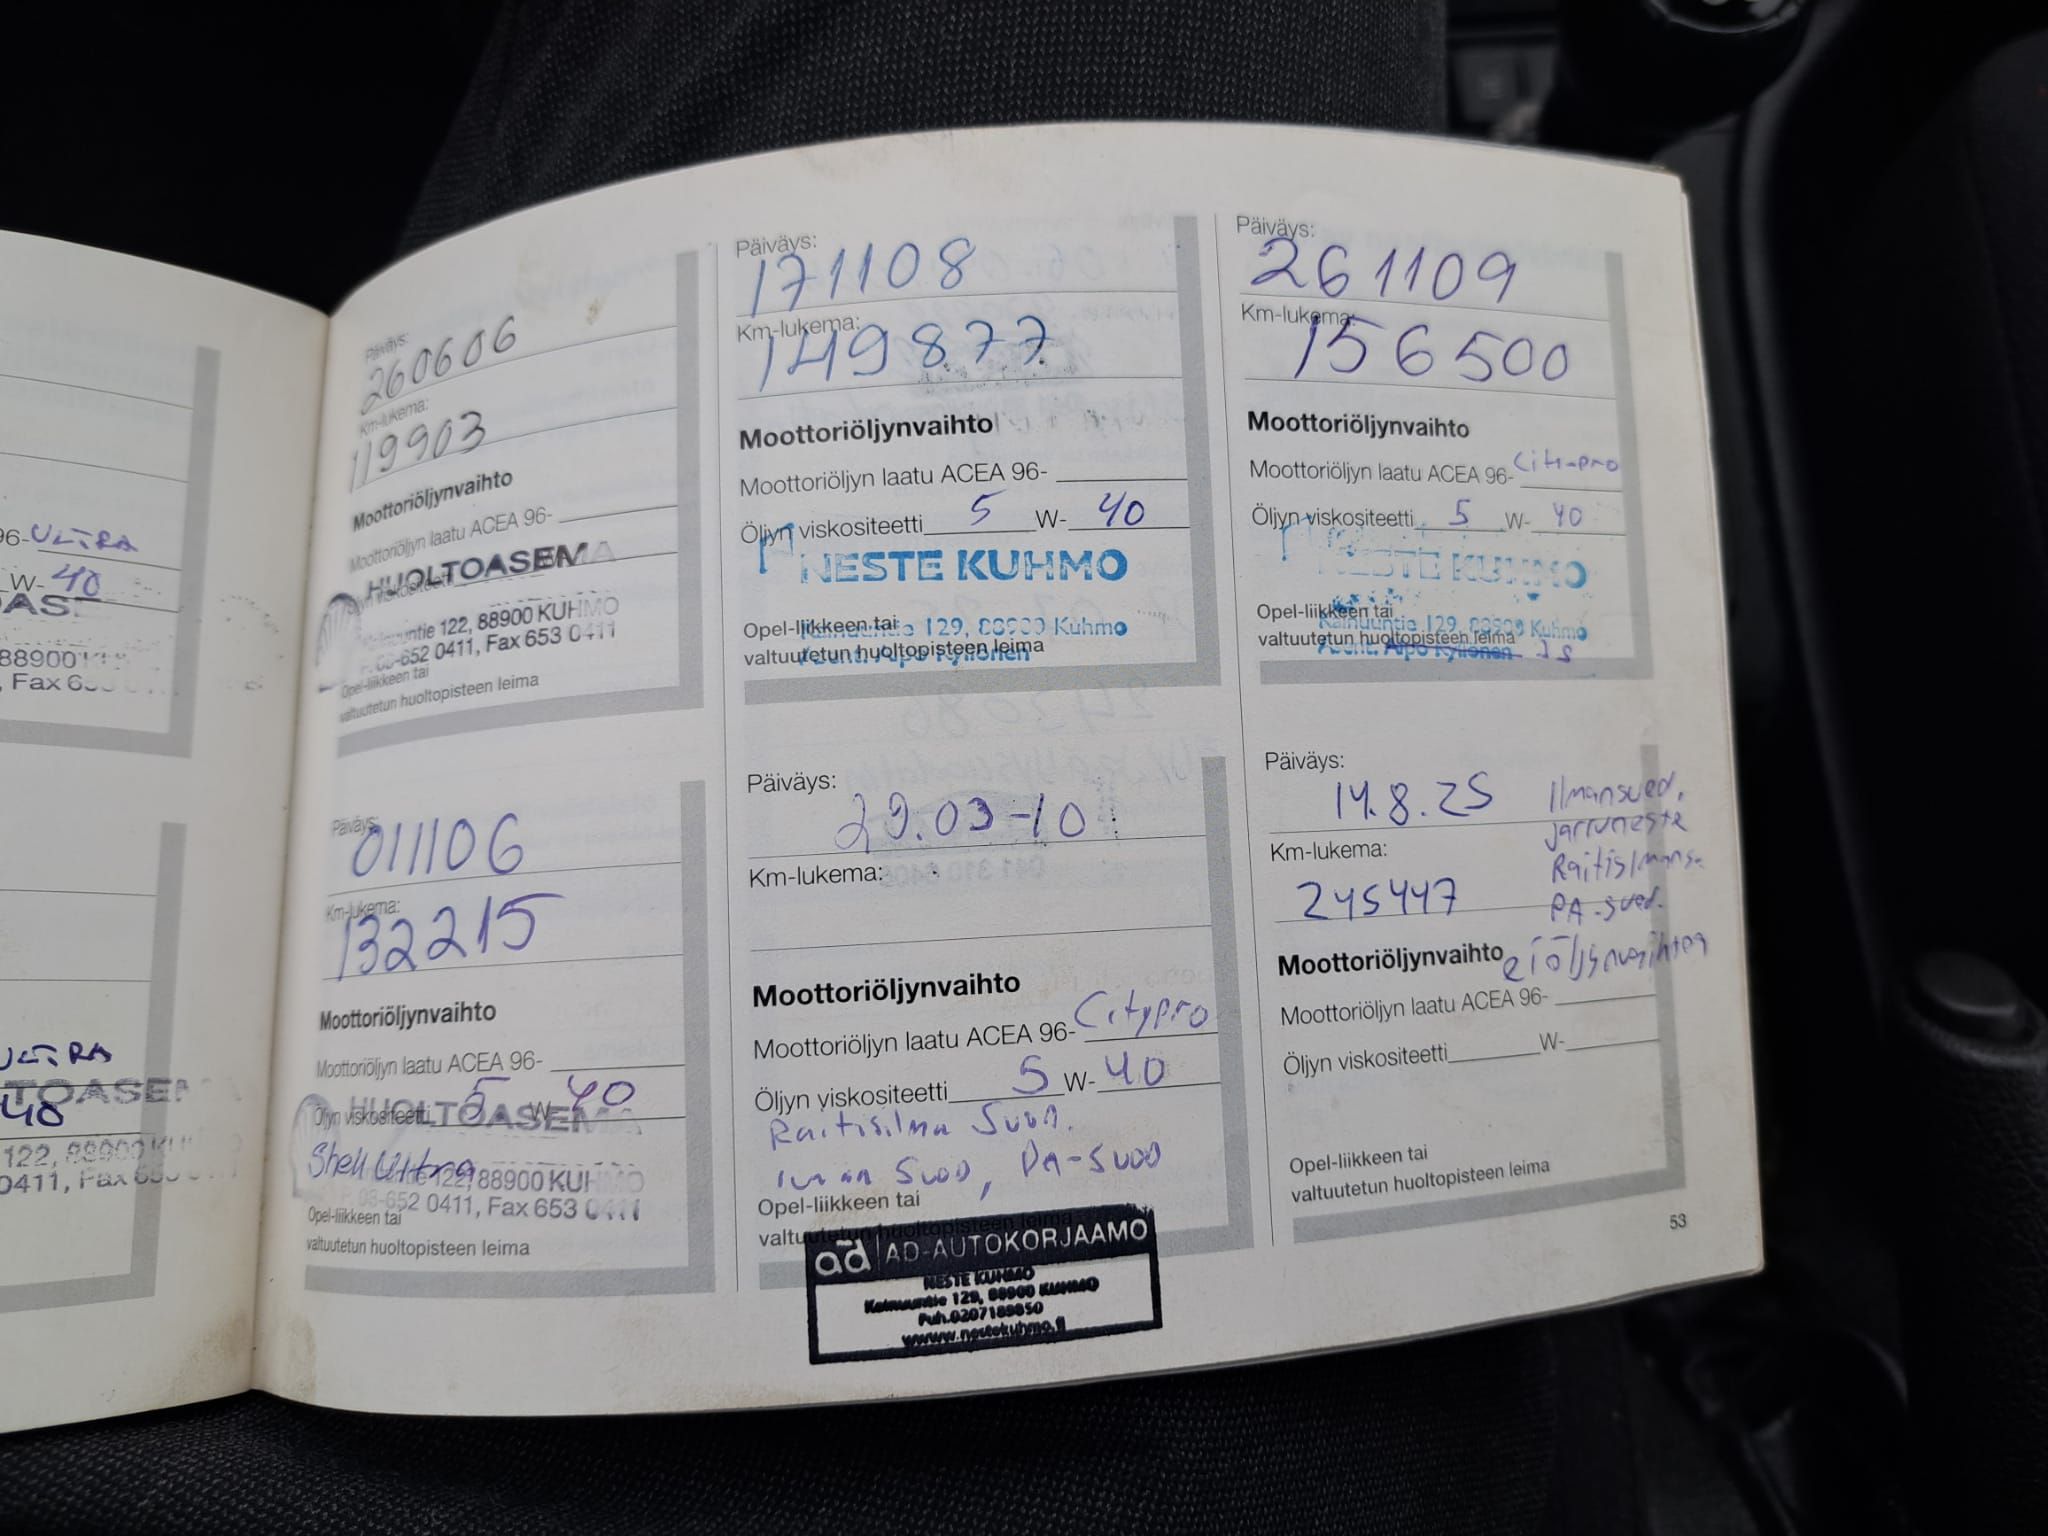 96- ULTRA
W- 40
88900
, Fax 6
ULTRA
TOASEM
40
122, 88900 KU
0411, Fax 653
Päiväys:
260606
Km-lukema:
119903
Moottoriöljynvaihto
Moottoriöljyn laatu ACEA 96-
HUOLTOASEMA
Öljyn viskositeetti
122, 88900 KUHMO
652 0411, Fax 653 0411
Opel-liikkeen tai
valtuutetun huoltopisteen leima
Päiväys:
011106
Km-lukema:
132215
Moottoriöljynvaihto
Moottoriöljyn laatu ACEA 96-
Öljyn viskositeetti 5 W- 40
HUOLTOASEMA
Shell Ultra
122, 88900 KUHMO
08-652 0411, Fax 653 0411
Opel-liikkeen tai
valtuutetun huoltopisteen leima
Päiväys:
171108
Km-lukema:
149877
Moottoriöljynvaihto
Moottoriöljyn laatu ACEA 96-
Öljyn viskositeetti 5 W- 40
NESTE KUHMO
Opel-liikkeen tai
Kainuuntie 129, 88900 Kuhmo
valtuutetun huoltopisteen leima
Päiväys:
29.03-10
Km-lukema:
Moottoriöljynvaihto
Moottoriöljyn laatu ACEA 96- Citypro
Öljyn viskositeetti 5 W- 40
Raitisilma Suod.
Suod, PA-suod
Opel-liikkeen tai
valtuutetun huoltopisteen leima
ad AD-AUTOKORJAAMO
NESTE KUHMO
Kainuuntie 129, 88900 KUHMO
Puh.0207189850
www.nestekuhmo.fi
Päiväys:
261109
Km-lukema:
156500
Moottoriöljynvaihto
Moottoriöljyn laatu ACEA 96- City-pro
Öljyn viskositeetti 5 W- 40
NESTE KUHMO
Opel-liikkeen tai
Kainuuntie 129, 88900 Kuhmo
valtuutetun huoltopisteen leima
JS
Päiväys:
14.8.25
Ilmansuod.
jarruneste
Km-lukema:
Raitisilmans.
245447
PA-suod.
Moottoriöljynvaihto
ei öljynvaihtoa
Moottoriöljyn laatu ACEA 96-
Öljyn viskositeetti W-
Opel-liikkeen tai
valtuutetun huoltopisteen leima
53